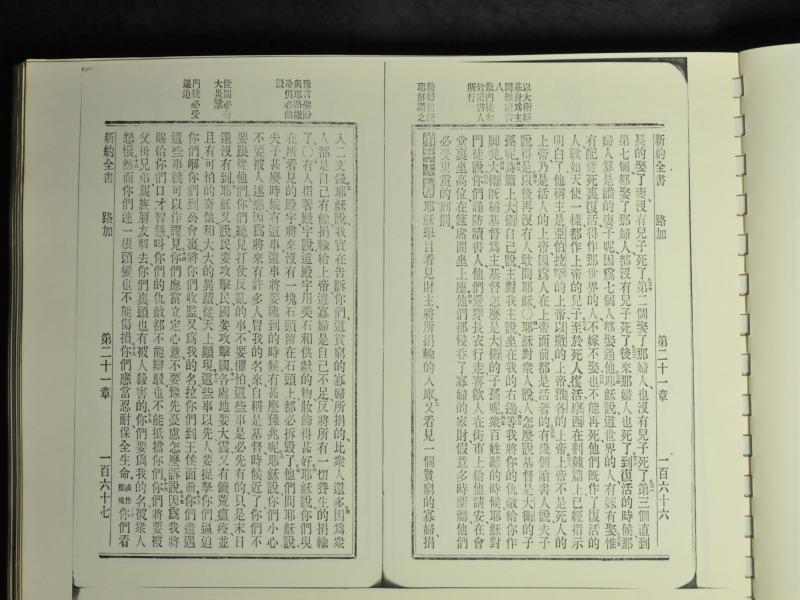 新約全書 路加 第二十一章 一百六十六
以大衛稱
基督為主
問難讀書
人
囑門徒勿
效讀書人
所行
嫠婦捐錢
耶穌讚之
長的娶了妻、沒有兒子死了、第二個娶了那婦人、也沒有兒子死了、第三個直到
第七個都娶了那婦人、都沒有兒子死了、後來那婦人也死了、到復活的時候、那
婦人算是誰的妻子呢、因為七個人都娶過他、耶穌說、這世界的人有嫁有娶、惟
有配從死裏復活得作那世界的人、不嫁不娶、也不能再死、他們既作了復活的
人、就如天使一樣、都作上帝的兒子、至於死人復活、摩西在荊棘篇上已經指示
明白了、他稱主是亞伯拉罕的上帝、以撒的上帝、雅各的上帝、上帝不是死人的
上帝、乃是活人的上帝、因為人在上帝面前都是活著的、有幾個讀書人說、夫子
說得是、以後再沒有人敢問耶穌○耶穌對衆人說、人怎麼說基督是大衛的子
孫呢、詩篇上大衛自己說、主對我主說、坐在我的右邊、等我將你的仇敵給你作
脚凳、大衛既稱基督為主、基督怎麼是大衛的子孫呢、衆百姓聽的時候、耶穌對
門徒說、你們謹防讀書人、他們愛穿長衣行走、喜歡人在街市上給他請安、在會
堂裏坐高位、在筵席間坐上座、他們卻侵吞了寡婦的家財、假意多時禱告、他們
必受更重的刑罰、
第二十一章 耶穌舉目看見財主將所捐輸的入庫、又看見一個貧窮的寡婦捐
豫言聖殿
與耶路撒
冷俱必傾
毀
世間必有
大災難
門徒必受
逼迫
入二文錢、耶穌說、我實在告訴你們、這貧窮的寡婦所捐的、比衆人還多、因為衆
人都是自己有餘、捐輸給上帝、這寡婦是自己不足、反將所有一切養生的捐輸
了○有人指著殿宇說、這殿宇用美石和供獻的物妝飾得甚好、耶穌說、你們現
在所看見的殿宇、將來沒有一塊石頭留在石頭上、都必拆毀了、他們問耶穌說、
夫子甚麼時候有這事、這事將要臨到的時候有甚麼豫兆呢、耶穌說、你們小心
不要被人迷惑、因為將來有許多人冒我的名來、自稱是基督、時候近了、你們不
要跟從他們、你們聽見打仗反亂的事、不要懼怕、這些事是必先有的、只是末日
還沒有到、耶穌又說、民要攻擊民、國要攻擊國、各處地要大震、又有饑荒瘟疫、並
且有可怕的奇像、和大大的異蹟、從天上顯現、這些事以先、人要捉拏你們、逼迫
你們、解你們到公會裏、將你們收監、又為我的名拉你們到王侯面前、你們遭遇
這些事、就可以作證見、你們應當立定心意、不要豫先憂慮怎麼訴說、因為我將
賜給你們口才智慧、叫你們的仇敵都不能辯駁、也不能抵擋你們、你們將要被
父母兄弟親族朋友解去、你們裏頭也有被人殺害的、你們要為我的名被衆人
怨恨、然而你們連一根頭髮也不能傷損、你們應當忍耐保全生命、或作靈魂你們看
新約全書 路加 第二十一章 一百六十七